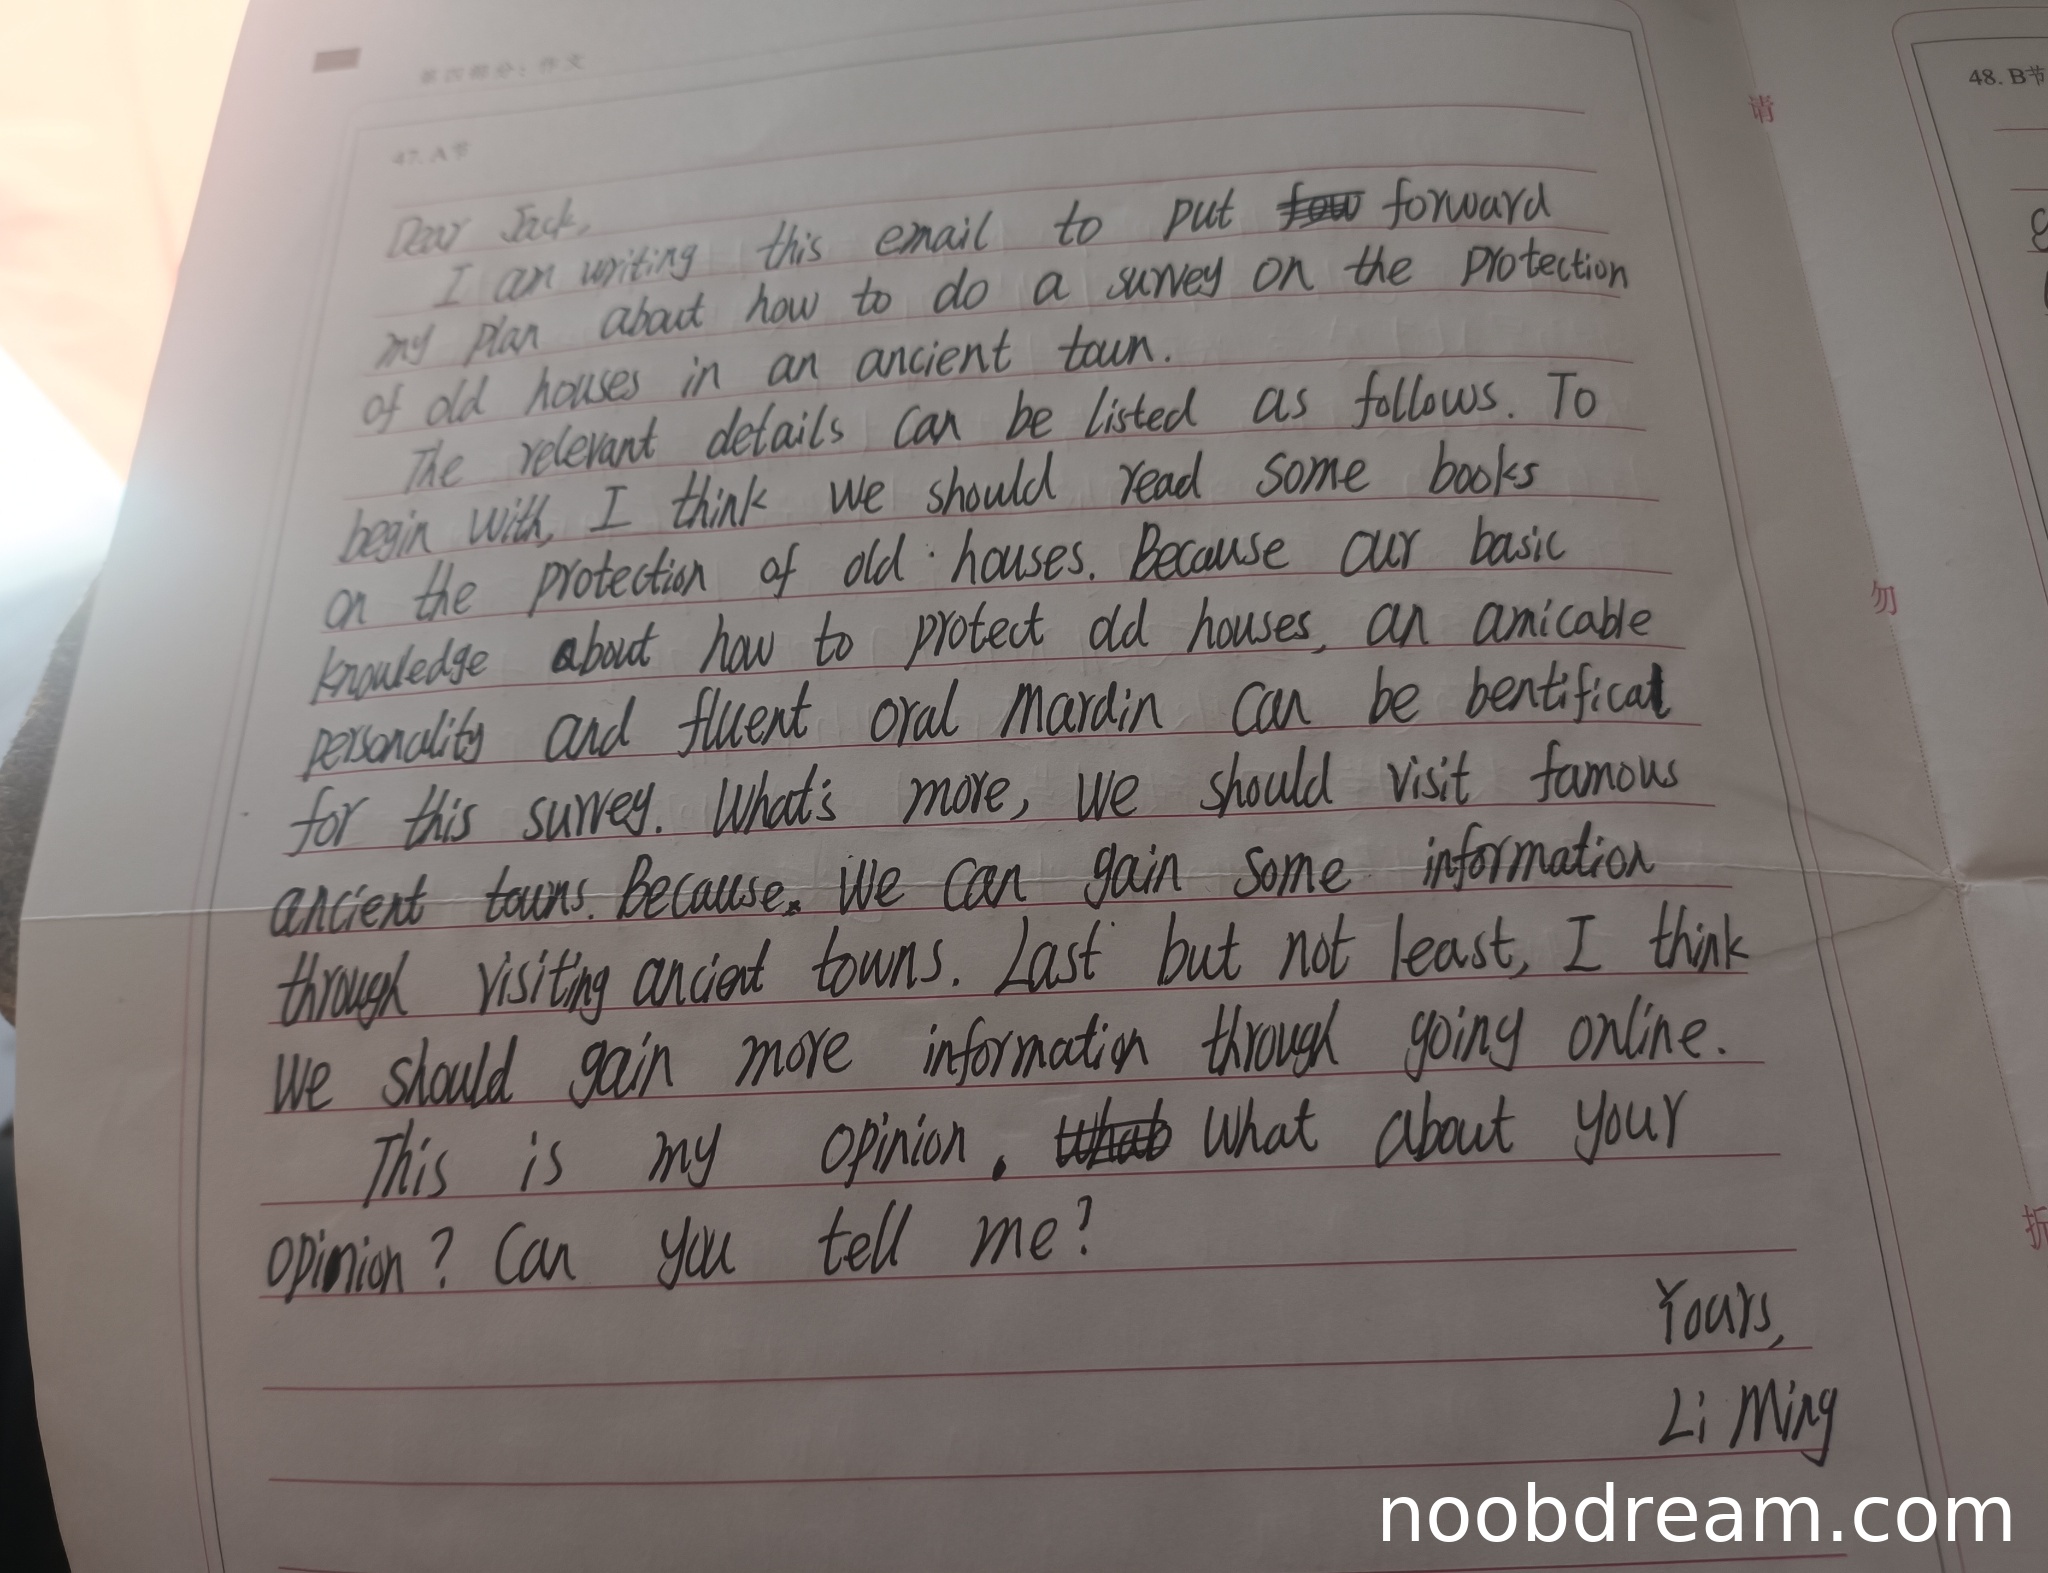 第四部分：作文
47. A节
Dear Jack,
I am writing this email to put forward
my plan about how to do a survey on the protection
of old houses in an ancient town.
The relevant details can be listed as follows. To
begin with, I think we should read some books
on the protection of old houses. Because our basic
knowledge about how to protect old houses, an amicable
personality and fluent oral mardin can be bentifical
for this survey. What's more, we should visit famous
ancient towns. Because. We can gain some information
through visiting ancient towns. Last but not least, I think
We should gain more information through going online.
This is my opinion. What about your
opinion? Can you tell me?
Yours,
Li Ming
48. B节
请
勿
折
noobdream.com